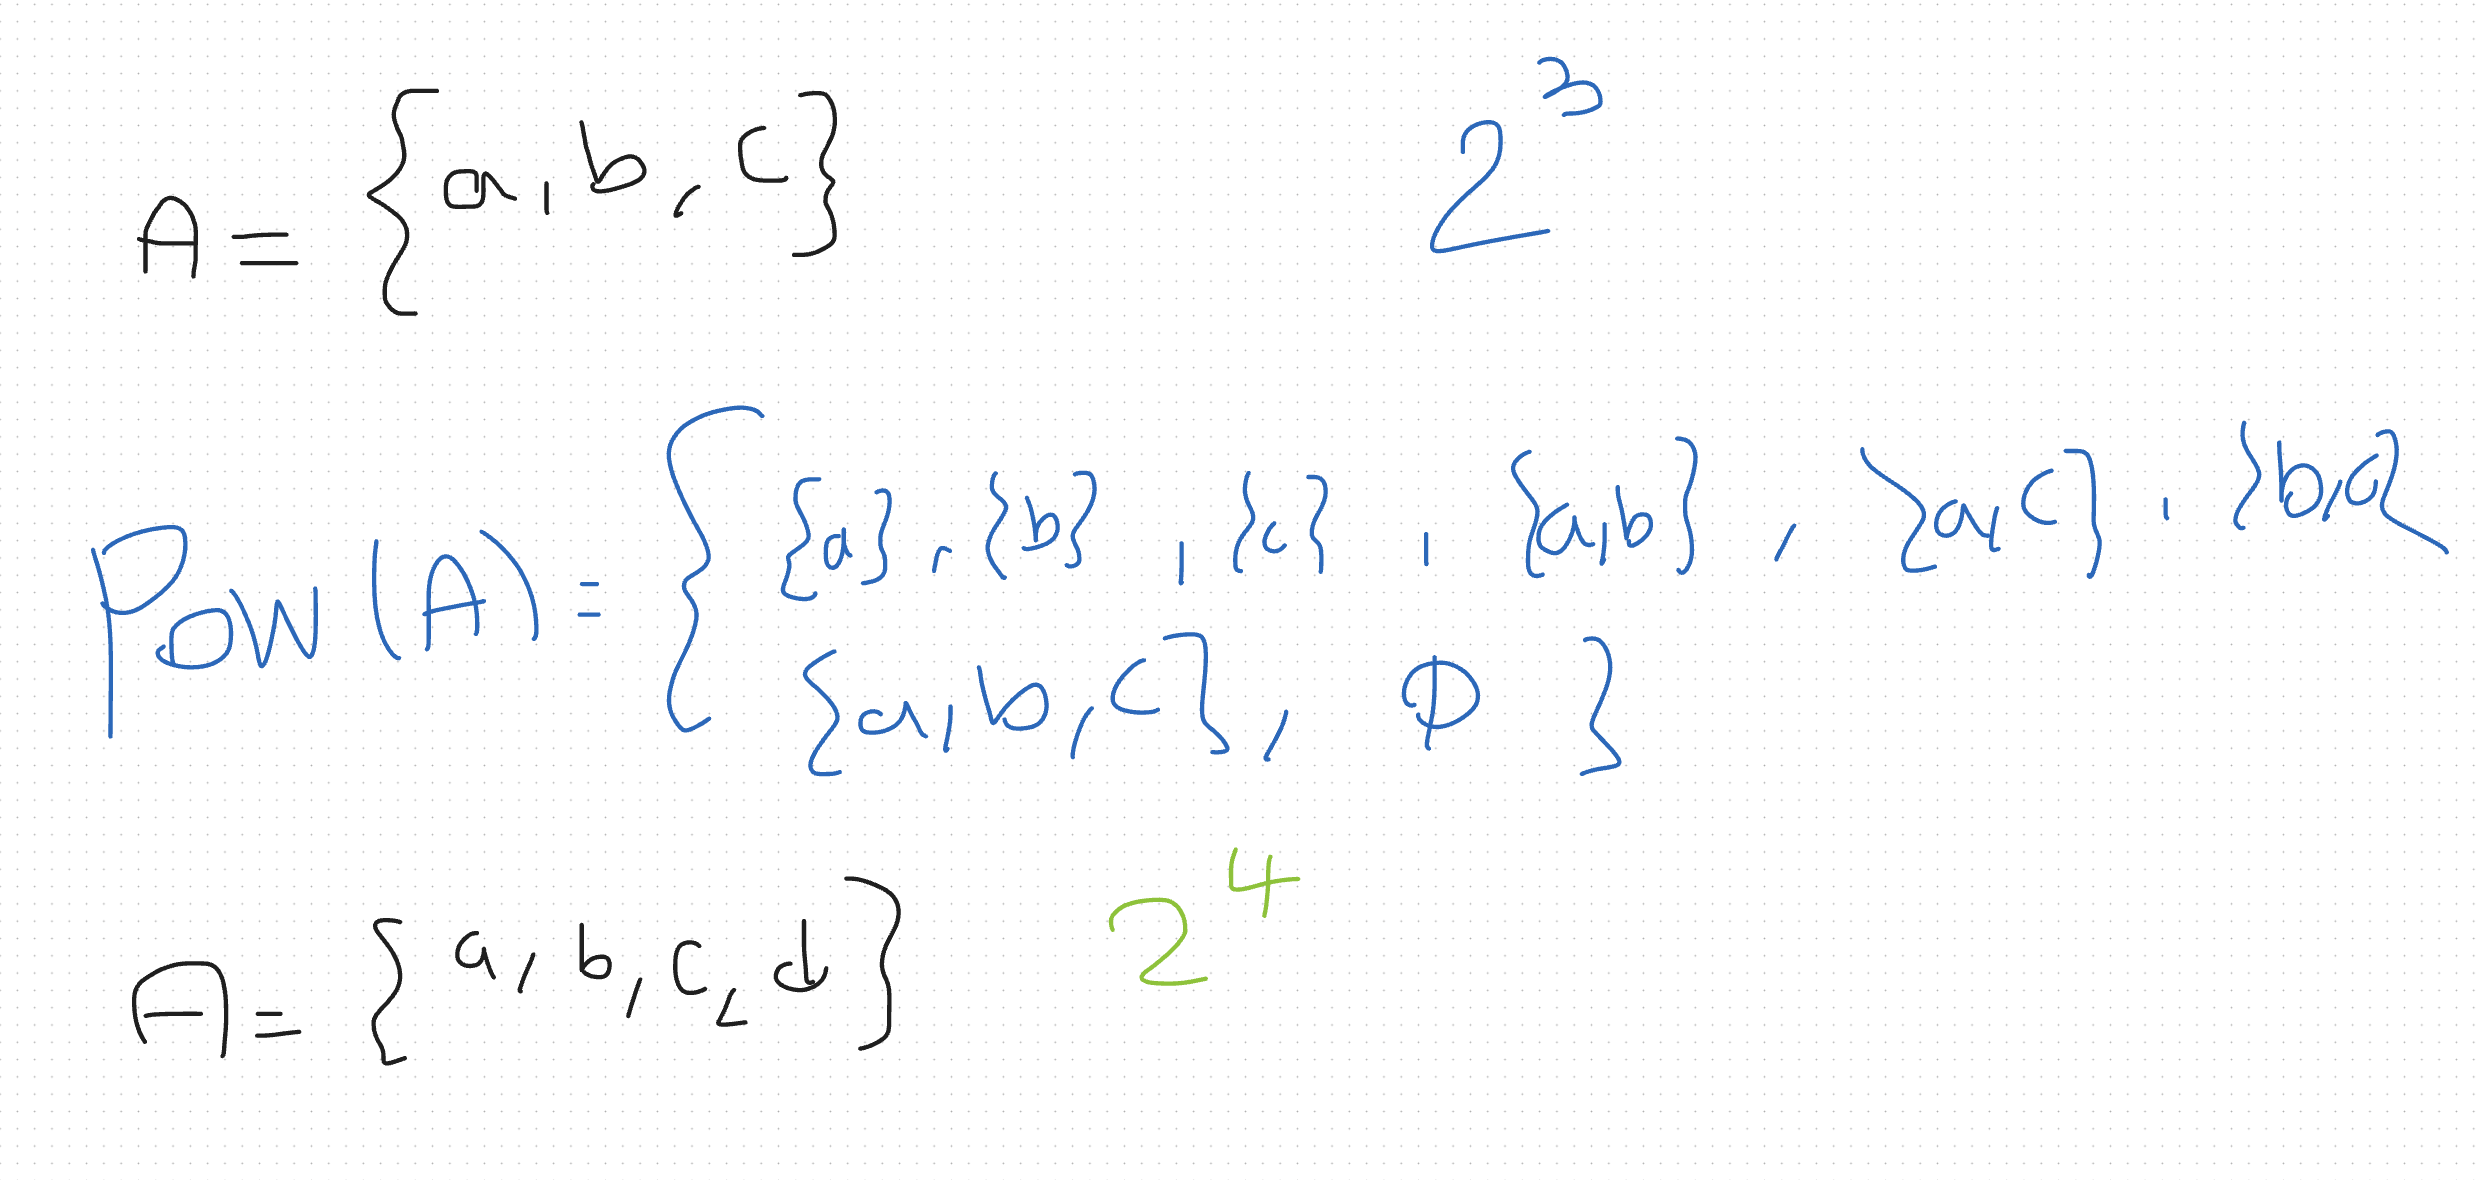 A = {a, b, c}
2³
Pow(A) = {{a}, {b}, {c}, {a,b}, {a,c}, {b,c}
{a,b,c}, Φ }
A = {a, b, c, d}
2⁴